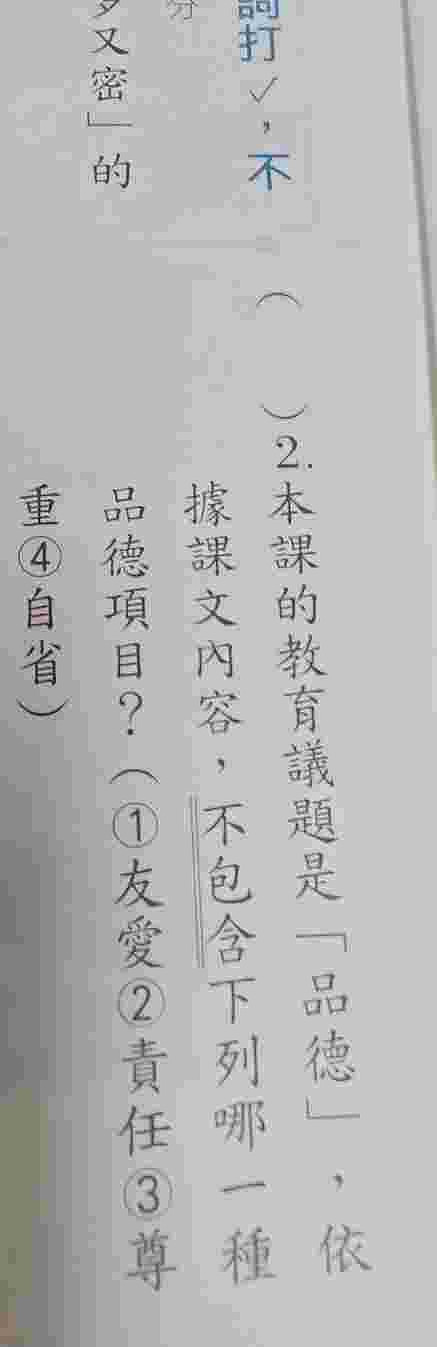 詞打✓，不
分
又密」的
（　　）2.本課的教育議題是「品德」，依
據課文內容，不包含下列哪一種
品德項目？（①友愛②責任③尊
重④自省）